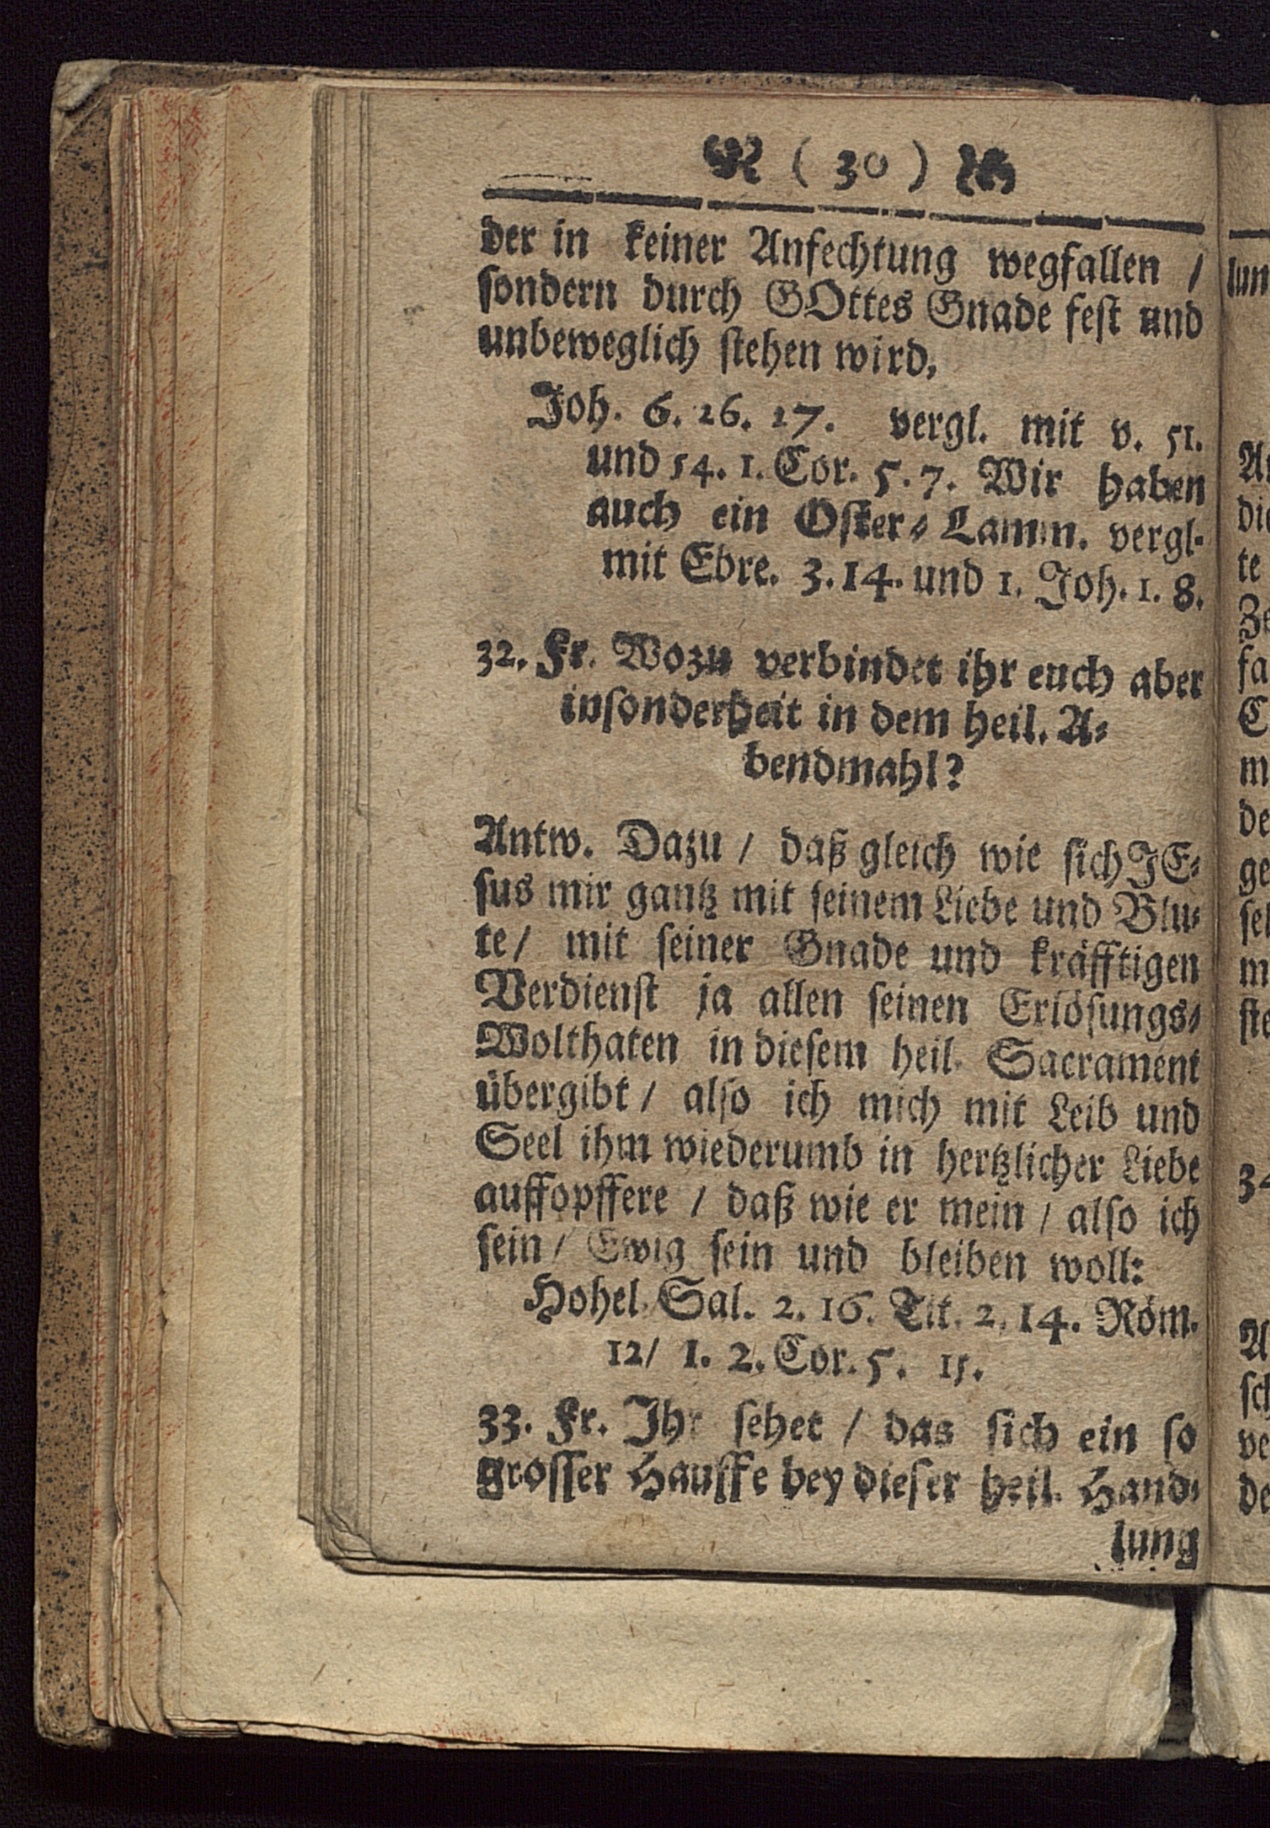 ( 30 )
der in keiner Anfechtung wegfallen /
sondern durch GOttes Gnade fest und
unbeweglich stehen wird,
Joh. 6. 26. 27. vergl. mit v. 51.
und 54. 1. Cor. 5. 7. Wir haben
auch ein Oster⸗Lamm. vergl.
mit Ebre. 3. 14. und 1. Joh. 1. 8.
32. Fr. Wozu verbindet ihr euch aber
insonderheit in dem heil. A⸗
bendmahl?
Antw. Dazu / daß gleich wie sich JE⸗
sus mir gantz mit seinem Liebe und Blu⸗
te / mit seiner Gnade und kräfftigen
Verdienst ja allen seinen Erlösungs⸗
Wolthaten in diesem heil. Sacrament
übergibt / also ich mich mit Leib und
Seel ihm wiederumb in hertzlicher Liebe
auffopffere / daß wie er mein / also ich
sein / Ewig sein und bleiben woll:
Hohel. Sal. 2. 16. Tit. 2. 14. Röm.
12 / 1. 2. Cor. 5. 15.
33. Fr. Ihr sehet / das sich ein so
grosser Hauffe bey dieser heil. Hand⸗
lung